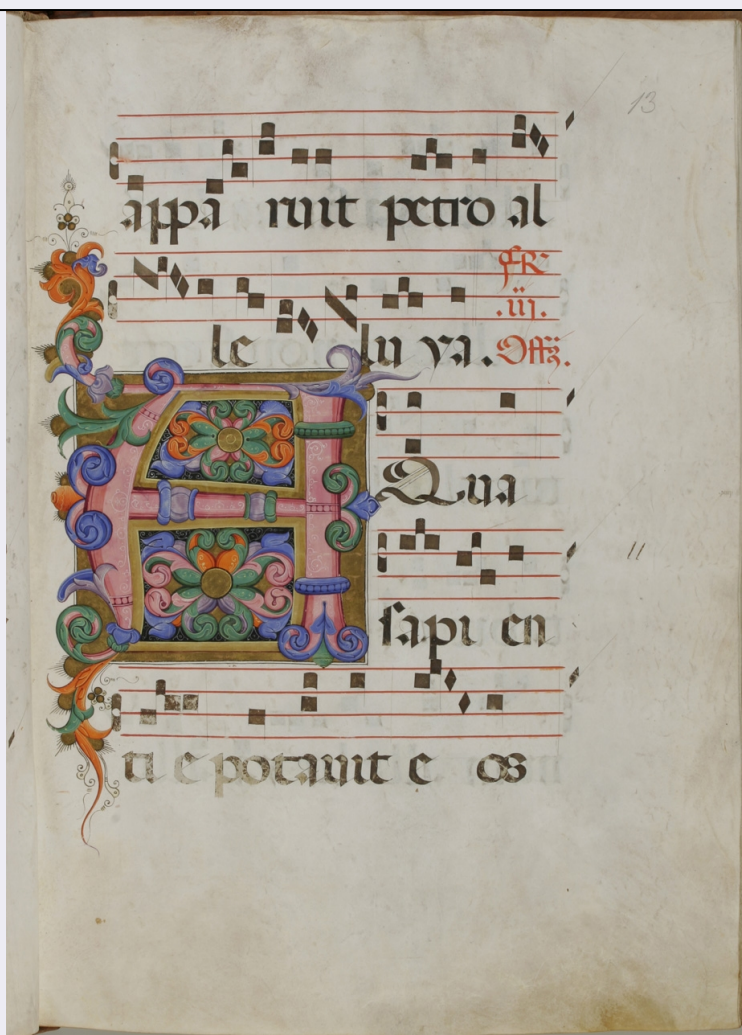 13
appa ruit petro al
fR
.iij.
le lu ya . Offz.
A Qua
11
sapi en
ti e potauit e os